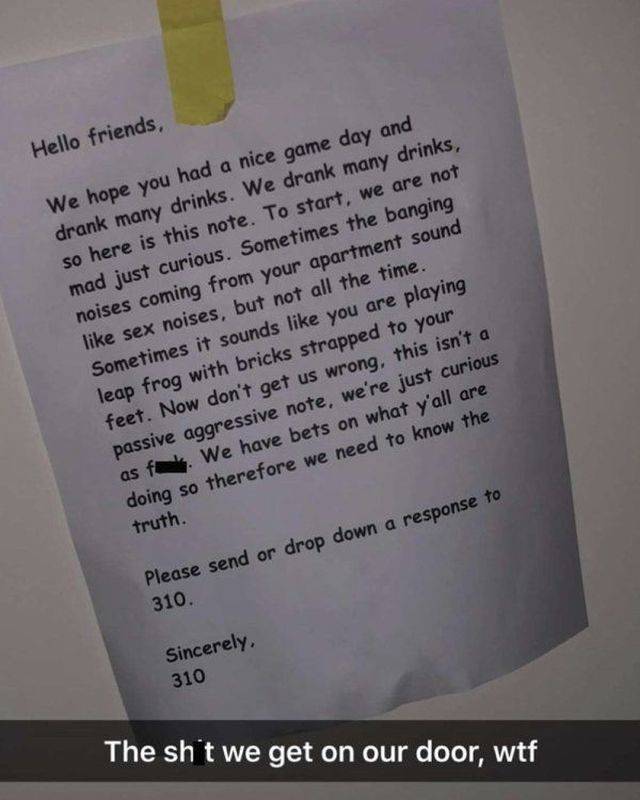 Hello friends,
We hope you had a nice game day and
drank many drinks. We drank many drinks,
so here is this note. To start, we are not
mad just curious. Sometimes the banging
noises coming from your apartment sound
like sex noises, but not all the time.
Sometimes it sounds like you are playing
leap frog with bricks strapped to your
feet. Now don't get us wrong, this isn't a
passive aggressive note, we're just curious
as f k. We have bets on what y'all are
doing so therefore we need to know the
truth.
Please send or drop down a response to
310.
Sincerely,
310
The sh t we get on our door, wtf